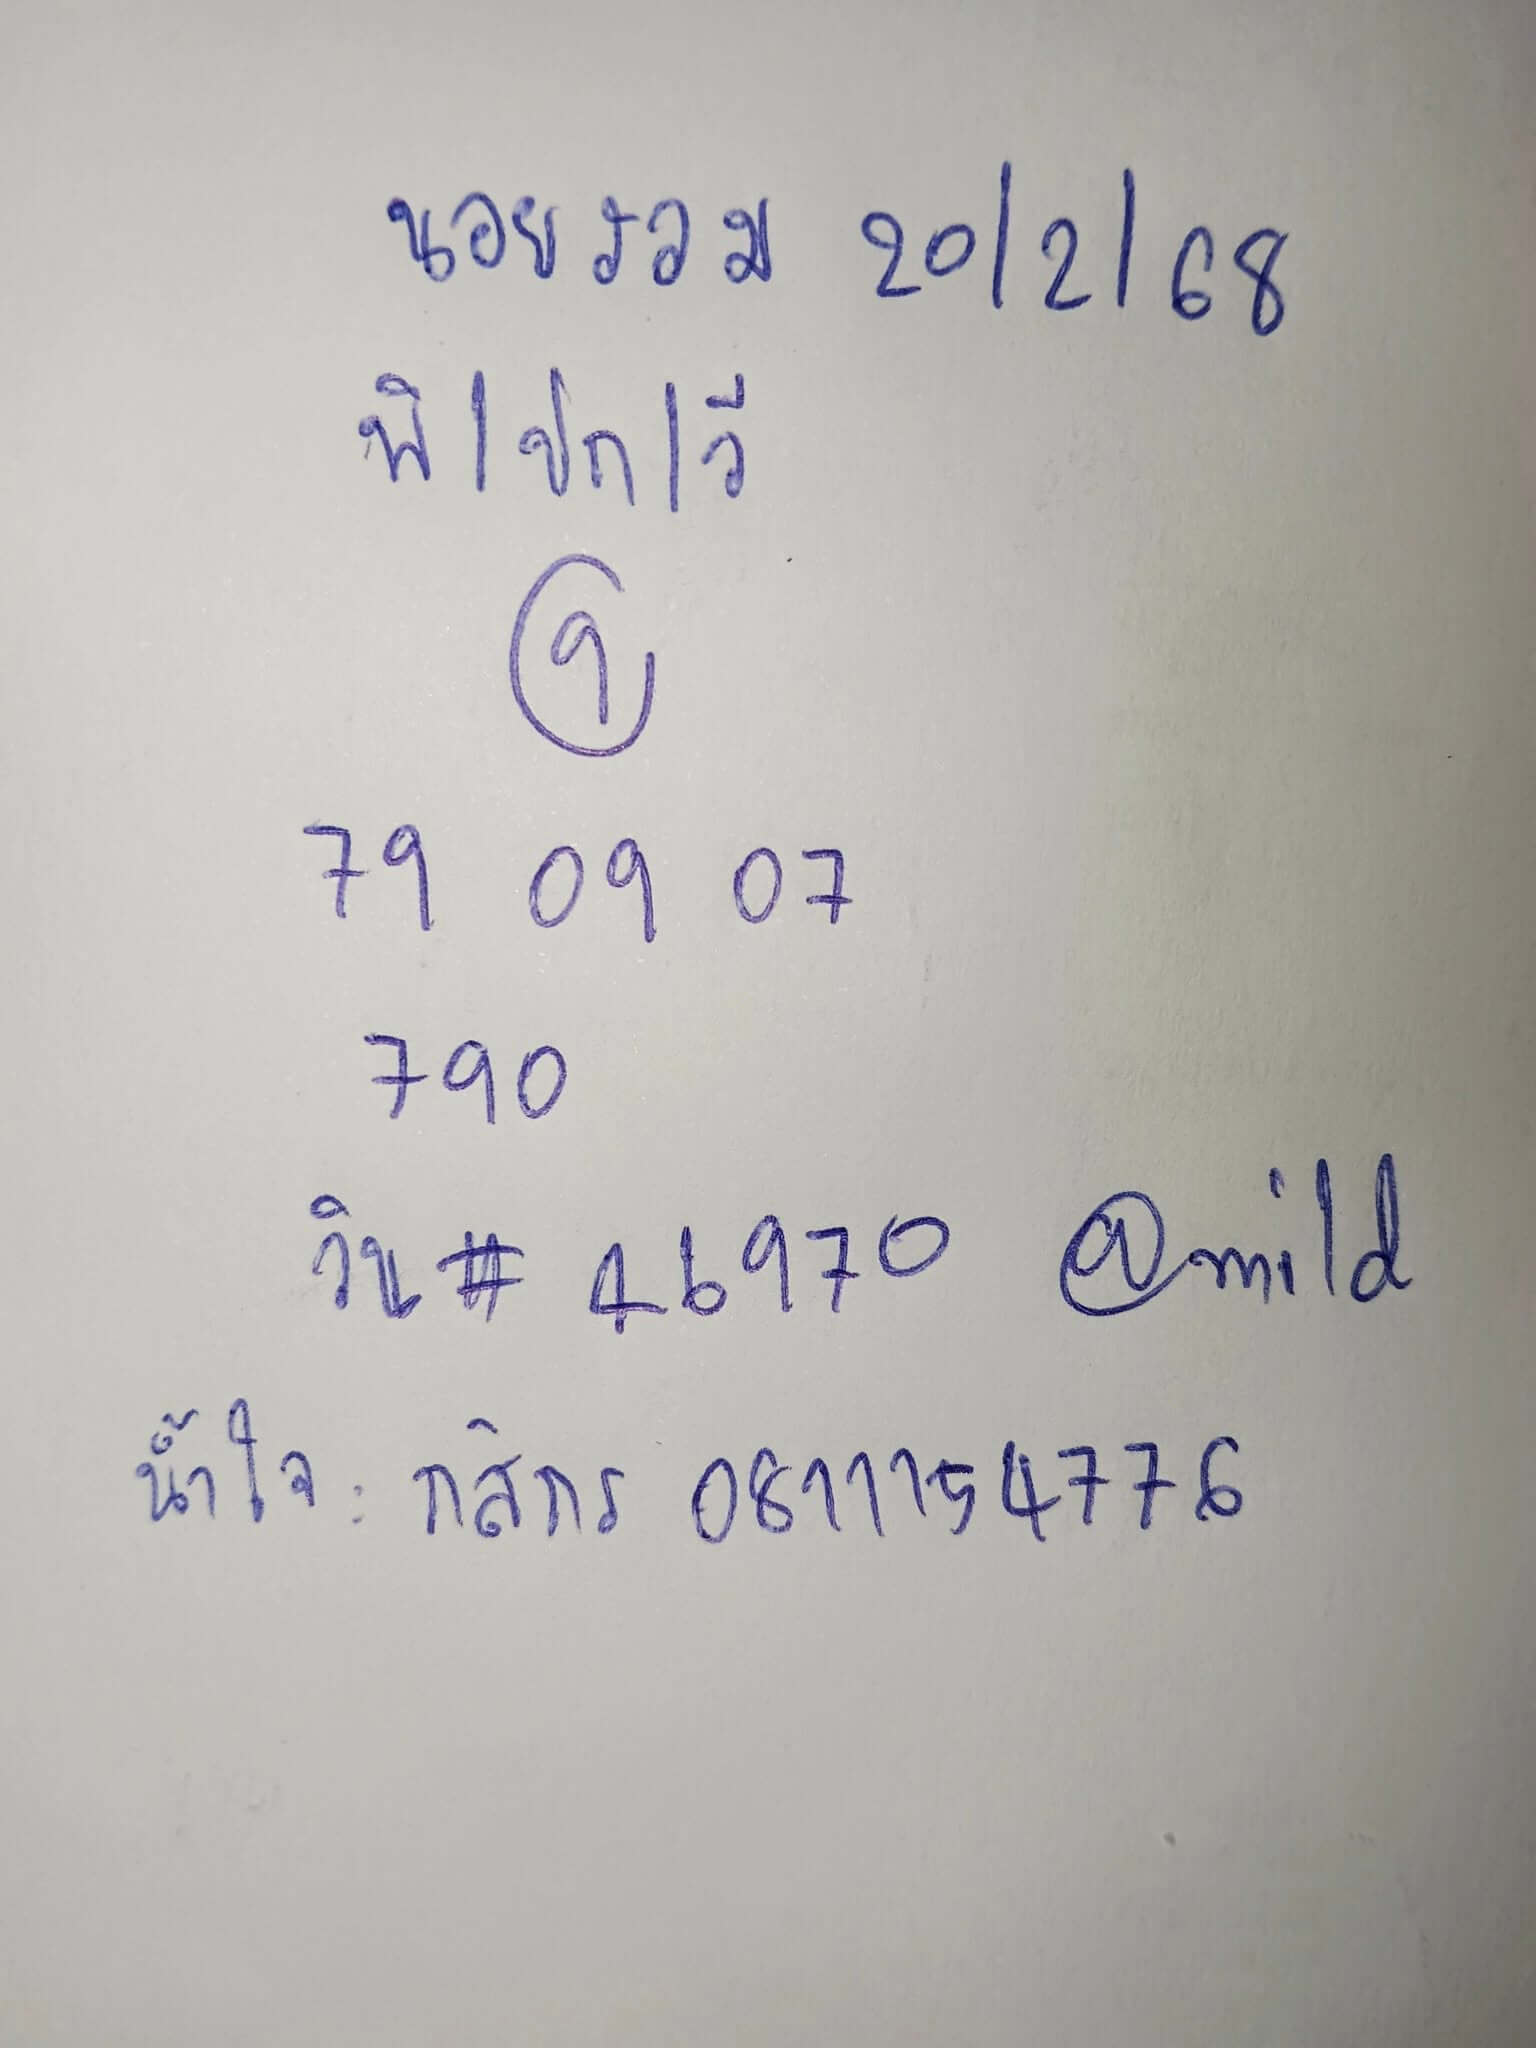 นอยรวม 20/2/68
พิ/ปก/วี
9
79 09 07
790
วิน # 46970 @mild
น้ำใจ: กสิกร 0811154776